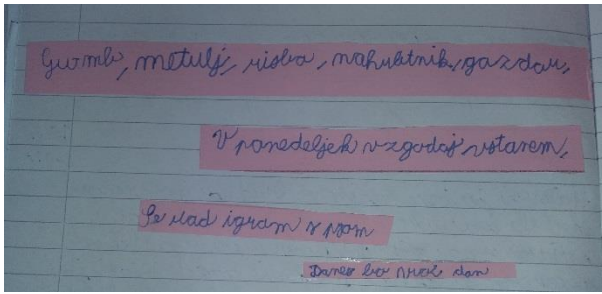 Gumb, metulj, risba, nahrbtnik, gozdar.
V ponedeljek vzgodaj vstanem.
Se rad igram s psom
Danes bo vroč dan